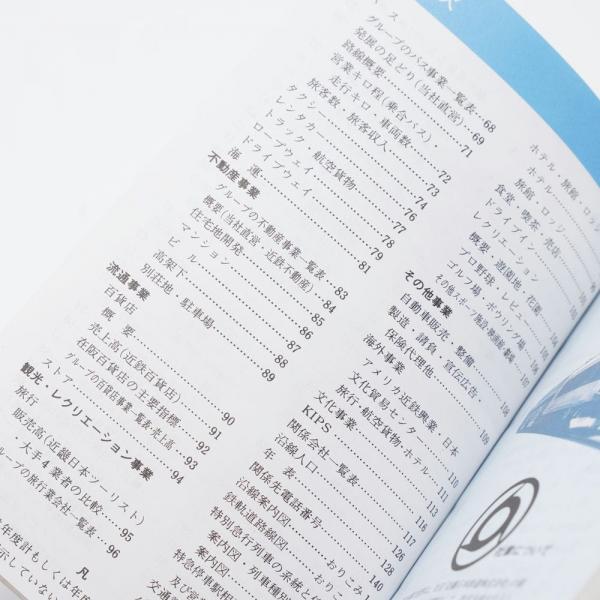 ス
グループのバス事業一覧表…68
発展の足どり(当社直営)…69
路線概要………71
営業キロ程(乗合バス)・
走行キロ・車両数・
旅客数・旅客収入………72
タクシー………73
レンタカー………74
トラック・航空貨物………76
ロープウェイ………77
海運………78
ドライブウェイ………79
不動産事業………81
グループの不動産事業一覧表…83
概要(当社直営・近鉄不動産)…84
住宅地開発………85
マンション………86
ビル………87
高架下………88
別荘地・駐車場………89
流通事業
百貨店
概要………90
売上高(近鉄百貨店)………91
在阪百貨店の主要指標………92
グループの百貨店事業一覧表・売上高…93
ストア………94
観光・レクリエーション事業
旅行
販売高(近畿日本ツーリスト)
・大手4業者の比較………95
ループの旅行業会社一覧表………96
凡
年度計もしくは年度
示していない
ホテル・旅館・ロッジ
ホテル
旅館・ロッジ
食堂・喫茶・売店
ドライブイン
レクリエーション
概要・遊園地・花菜
プロ野球・レビュー
ゴルフ場・ボウリング場
その他事業
自動車販売・整備
製造・請負・宣伝広告
保険代理他
海外事業
アメリカ近鉄興業・日本
文化貿易センター………109
旅行・航空貨物・ホテル
文化事業………110
KIPS………111
関係会社一覧表………112
沿線人口………114
年表………116
関係先電話番号………117
沿線案内図………126
鉄軌道路線図………128
特別急行列車の系統と停
案内図・列車種別
特急停車駅相
及び営
交通
おりこみ
おりこみ
140